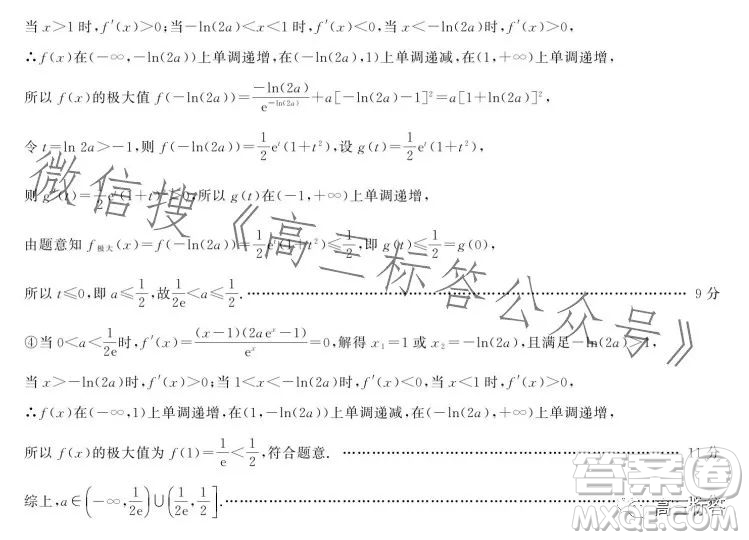 当 x>1 时,f′(x)>0;当-ln(2a)<x<1 时,f′(x)<0,当 x<-ln(2a)时,f′(x)>0,
∴f(x)在(-∞,-ln(2a))上单调递增,在(-ln(2a),1)上单调递减,在(1,+∞)上单调递增,
所以 f(x)的极大值 f(-ln(2a))=\frac{-ln(2a)}{e^{-ln(2a)}}+a[-ln(2a)-1]²=a[1+ln(2a)²],
令 t=ln 2a>-1,则 f(-ln(2a))=\frac{1}{2}e^t(1+t²),设 g(t)=\frac{1}{2}e^t(1+t²),
则 g′(t)=\frac{1}{2}e^t(1+t)²>0,所以 g(t)在(-1,+∞)上单调递增,
由题意知 f极大(x)=f(-ln(2a))=\frac{1}{2}e^t(1+t²)≤\frac{1}{2},即 g(t)≤\frac{1}{2}=g(0),
所以 t≤0,即 a≤\frac{1}{2},故\frac{1}{2e}<a≤\frac{1}{2}. …… 9 分
④当 0<a<\frac{1}{2e}时,f′(x)=\frac{(x-1)(2ae^x-1)}{e^x}=0,解得 x₁=1 或 x₂=-ln(2a),且满足-ln(2a)>1,
当 x>-ln(2a)时,f′(x)>0;当 1<x<-ln(2a)时,f′(x)<0,当 x<1 时,f′(x)>0,
∴f(x)在(-∞,1)上单调递增,在(1,-ln(2a))上单调递减,在(-ln(2a),+∞)上单调递增,
所以 f(x)的极大值为 f(1)=\frac{1}{e}<\frac{1}{2},符合题意. …… 11 分
综上,a∈(-∞,\frac{1}{2e})∪(\frac{1}{2e},\frac{1}{2}]. ……
微信搜《高三标答公众号》
答案圈
高三标答
MXQE.COM